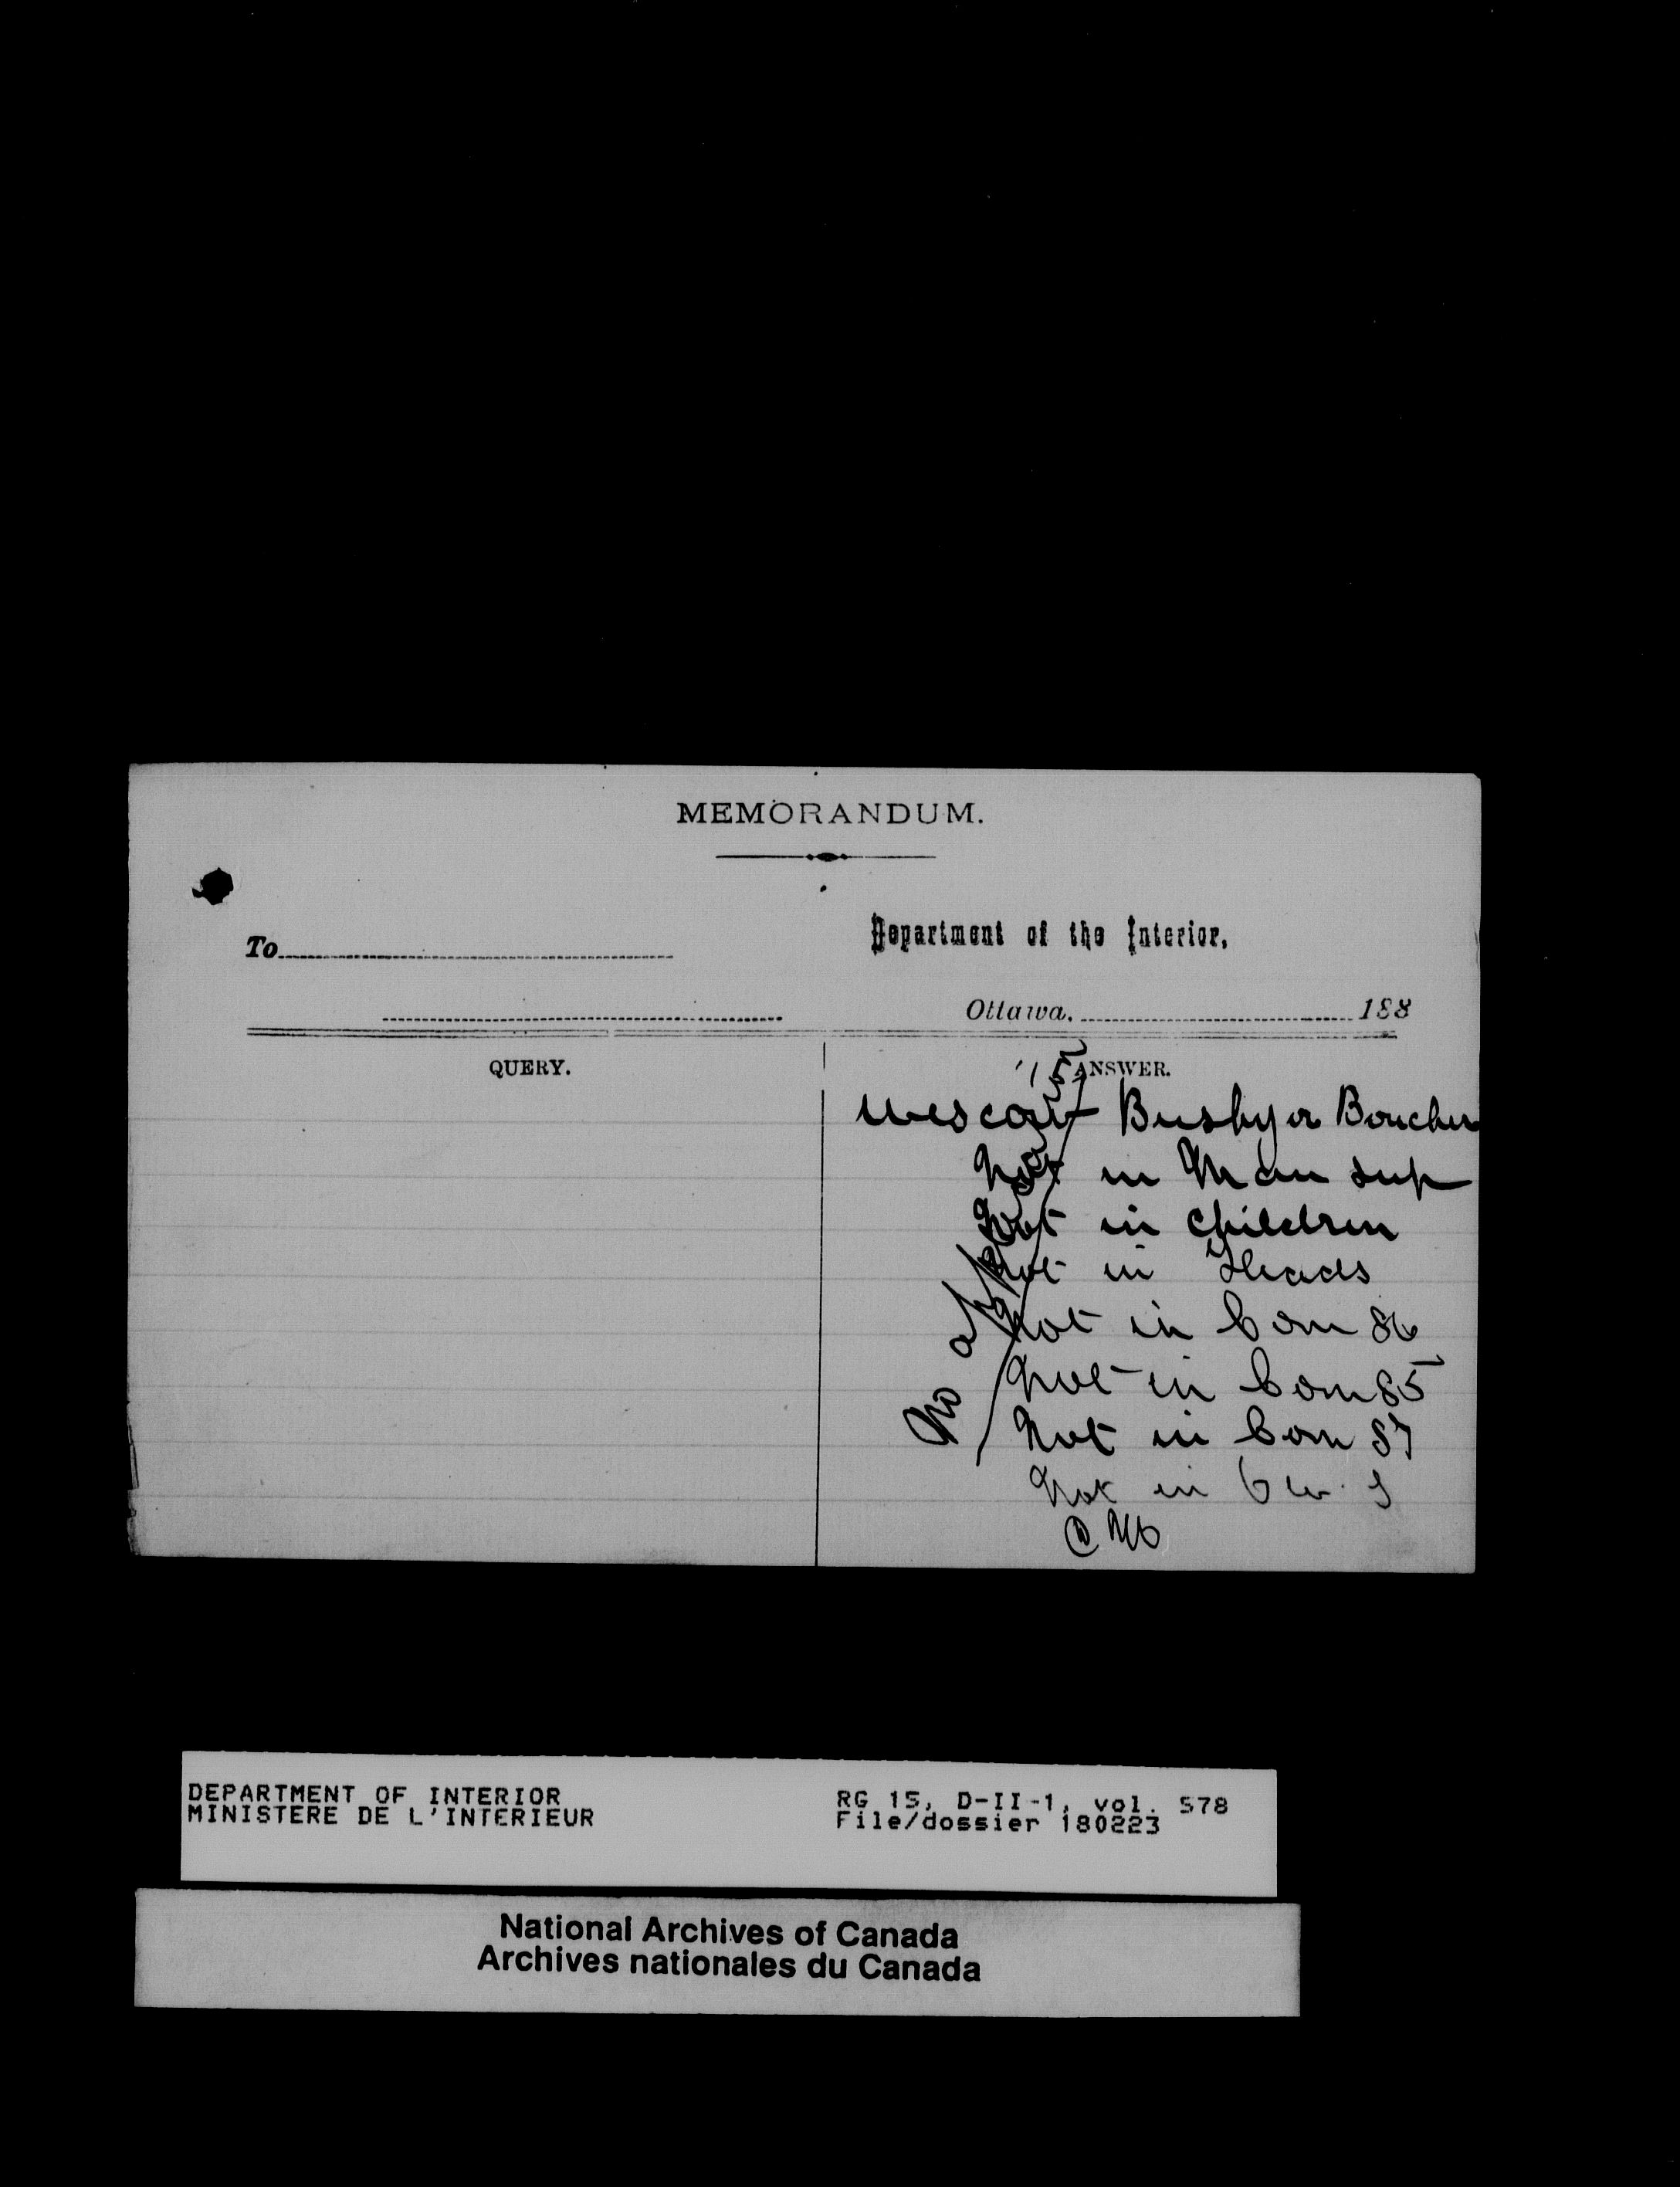 MEMORANDUM.
Department of the Interior.
To
Ottawa, 188
QUERY.
ANSWER.
Wescat Busby or Boucher
Not in Man sup
Not in Children
Not in Heads
Not in Com 86
Not in Com 85
Not in Com 87
Not in
No
DEPARTMENT OF INTERIOR
MINISTERE DE L'INTERIEUR
RG 15, D-II-1, vol. 578
File/dossier 180223
National Archives of Canada
Archives nationales du Canada